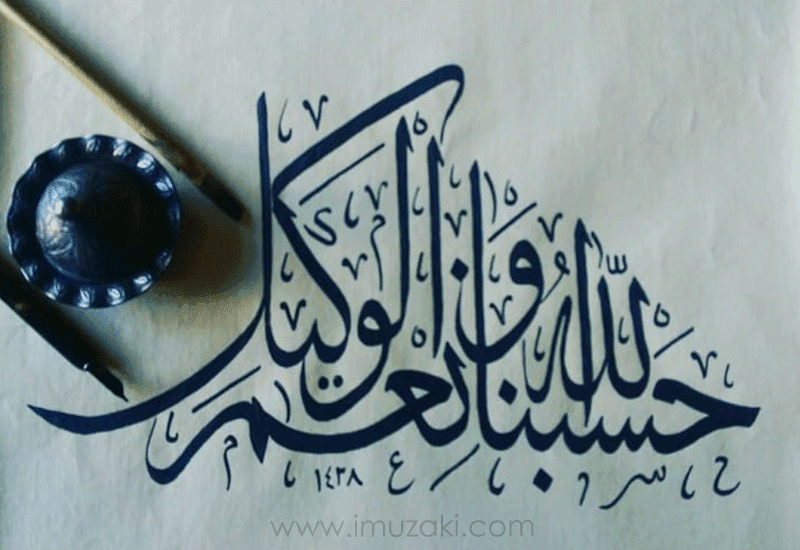 حسبنا الله ونعم الوكيل
١٤٣٨
www.imuzaki.com